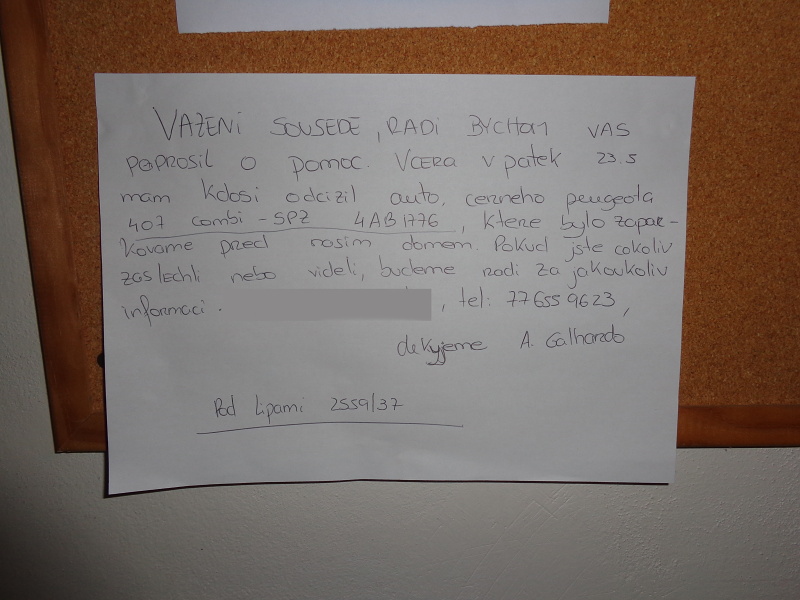 VAZENI SOUSEDE, RADI BYCHOM VAS
POPROSIL O POMOC. VCERA V patek 23.5
mam kdosi odcizil auto, cerneho peugeota
407 combi - SPZ 4AB1776, ktere bylo zapar-
kovame pred nasim domem. Pokud jste cokoliv
zaslechli nebo videli, budeme radi za jakoukoliv
informaci. , tel: 776559623,
dekyjeme A. Galhardo
Pod Lipami 2559/37